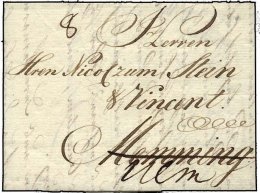 8
Herren
Hren Nicol zum Stein
& Vincent
Memming
Ulm